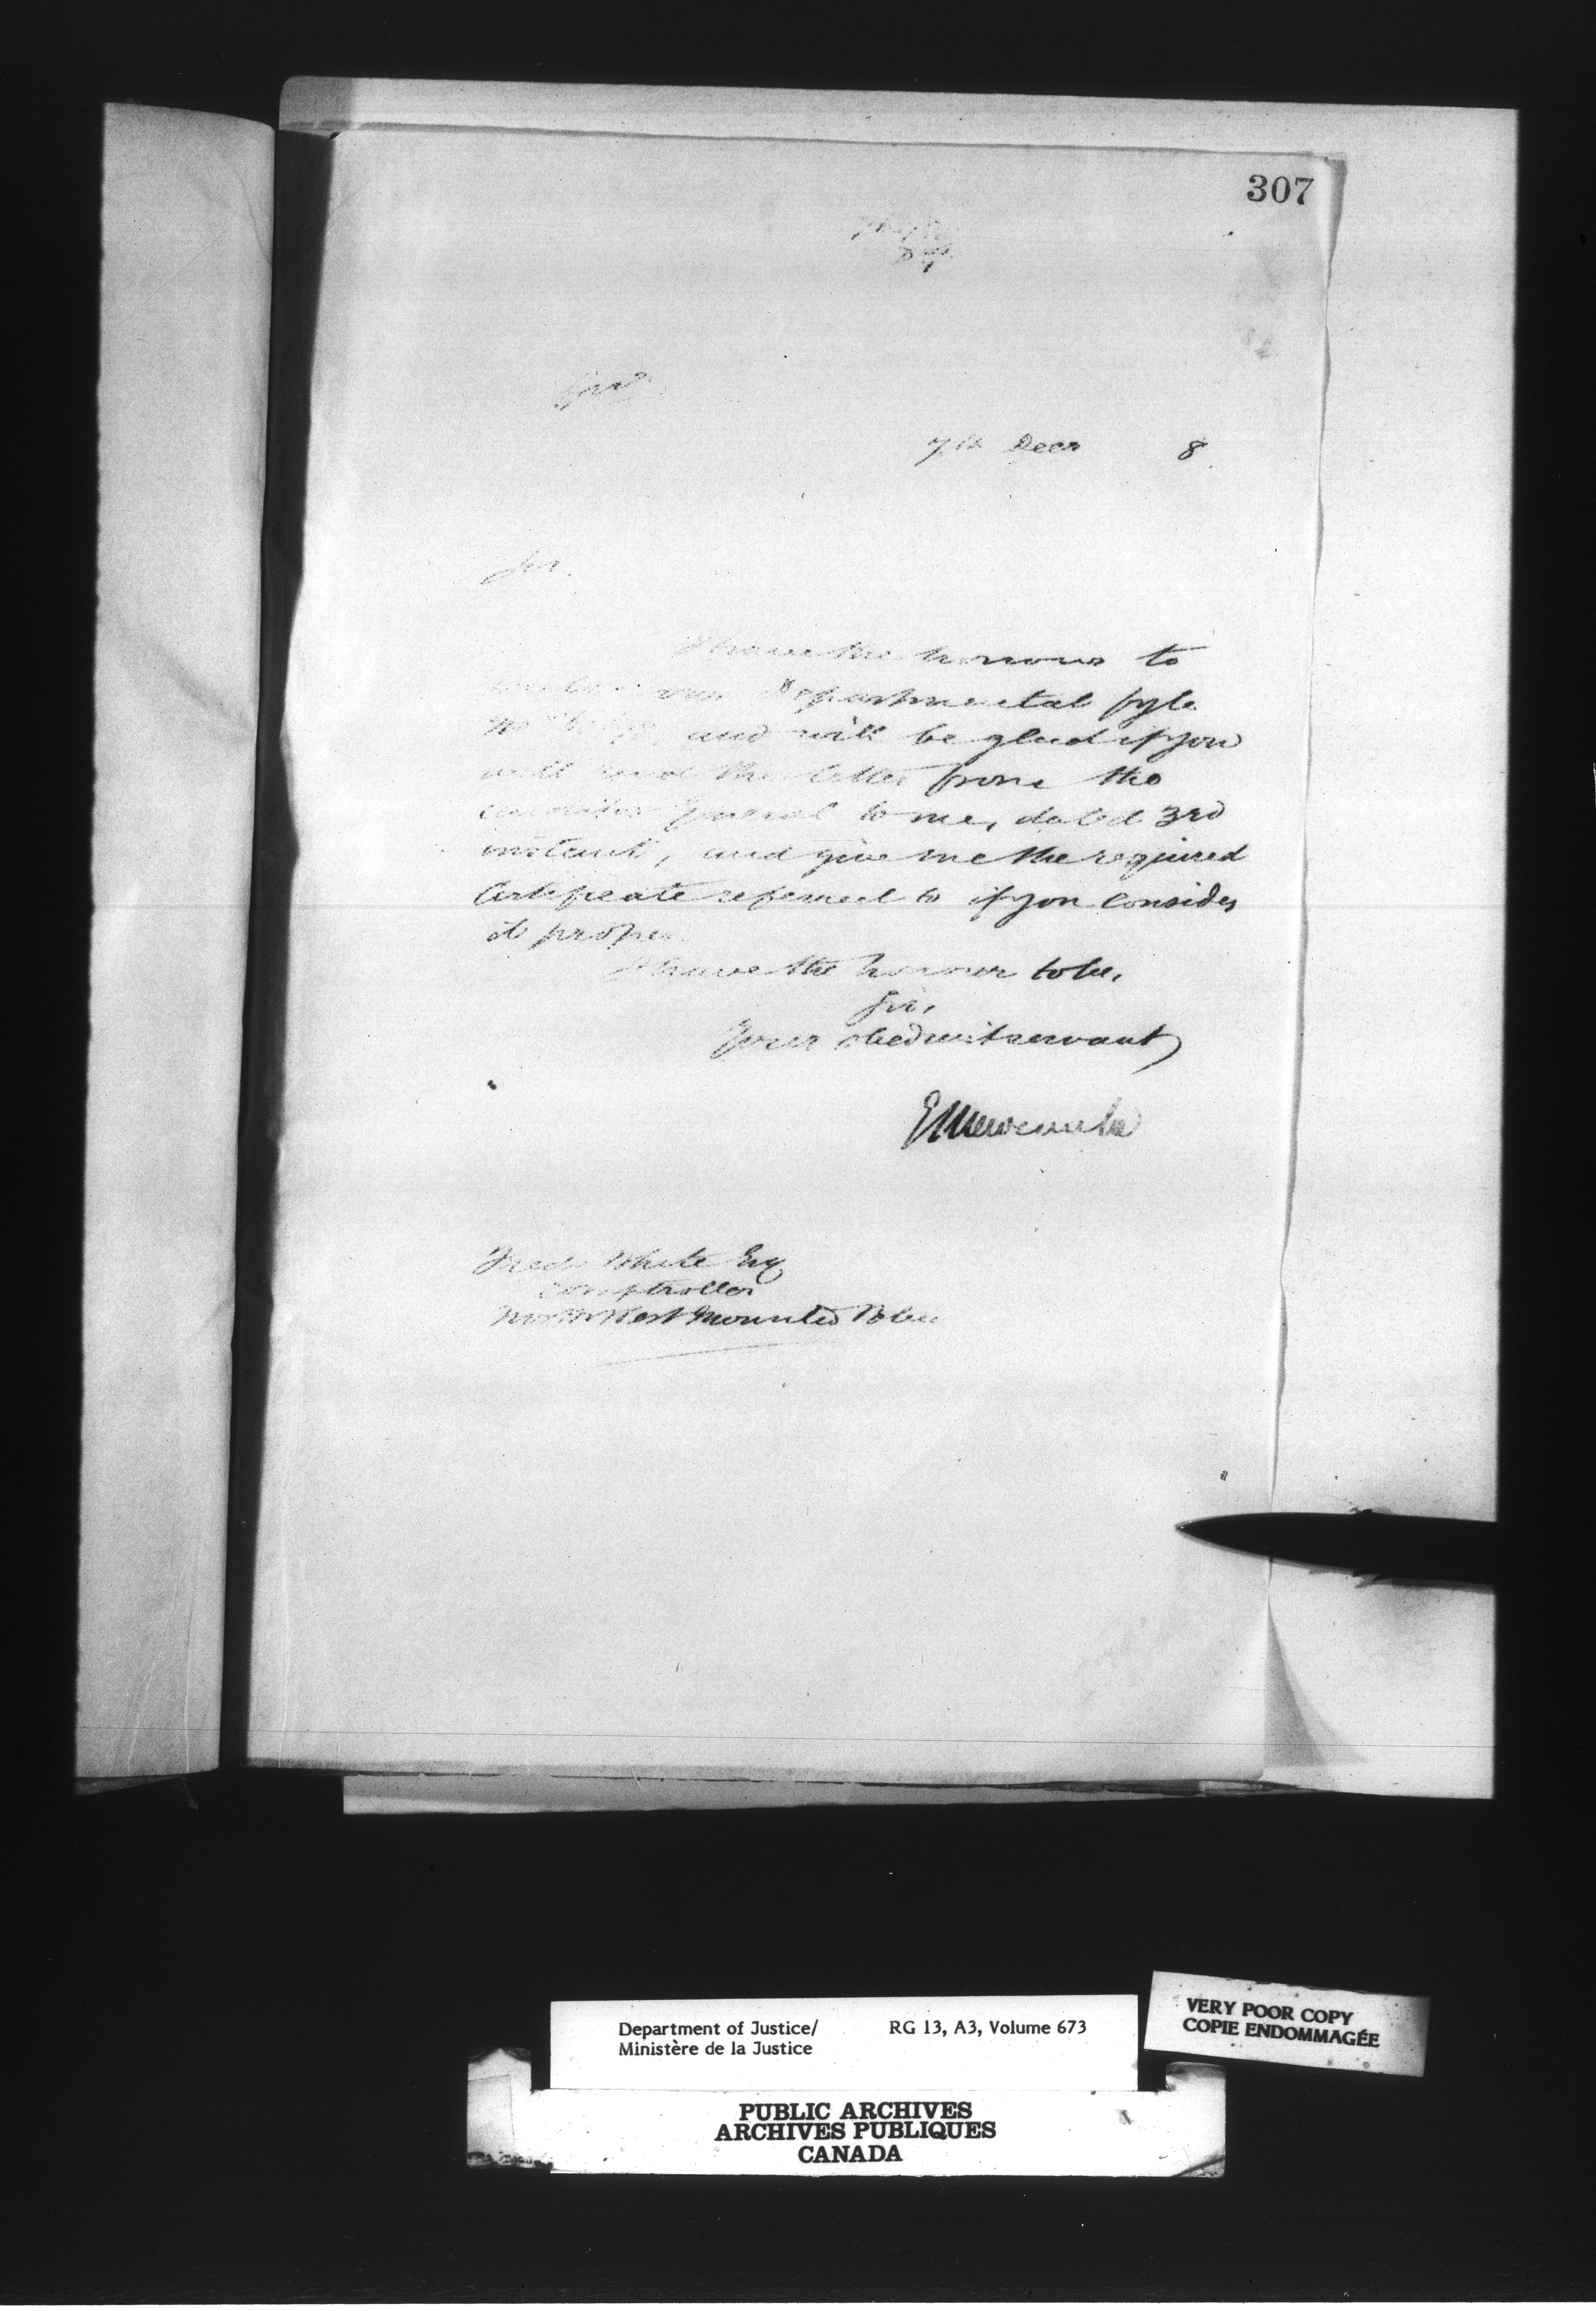 307
7th Decr 8
Sir.
I have the honour to
your Departmental fyle
No and will be glad if you
will read the letter from the
Auditor General to me, dated 3rd
instant, and give me the required
Certificate referred to if you consider
it proper.
I have the honour to be,
Sir,
Your obedient servant
E L Newcombe
Fred White Esq
Comptroller
North West Mounted Police
Department of Justice/ RG 13, A3, Volume 673
Ministère de la Justice
VERY POOR COPY
COPIE ENDOMMAGÉE
PUBLIC ARCHIVES
ARCHIVES PUBLIQUES
CANADA